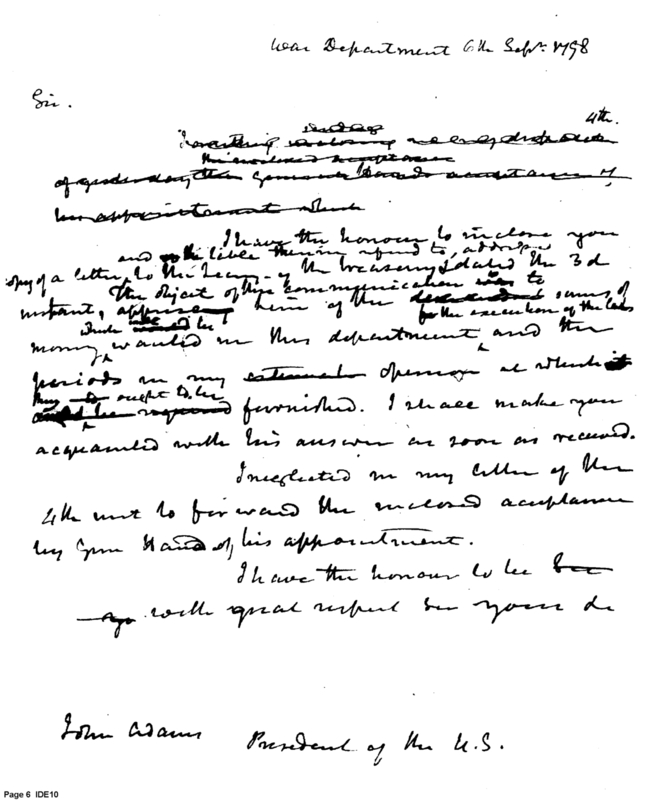 War Department 6th Sept. 1798
Sir.
4th.
of yesterday, the
his appointment which
I have the honour to inclose you
and the table therein referred to, addressed
copy of a letter to the Secy. of the treasury dated the 3d
instant, The object of this communication was to
appress him of the sums of
for the execution of the laws
which will be
money wanted in this department and the
periods in my estimate opinion at which it
they ought to be
furnished. I shall make you
acquainted with his answer as soon as received.
I neglected in my letter of the
4th inst to forward the inclosed acceptance
by Genl Hand of his appointment.
I have the honour to be
with great respect Sir your
John Adams President of the U.S.
Page 6 IDE10